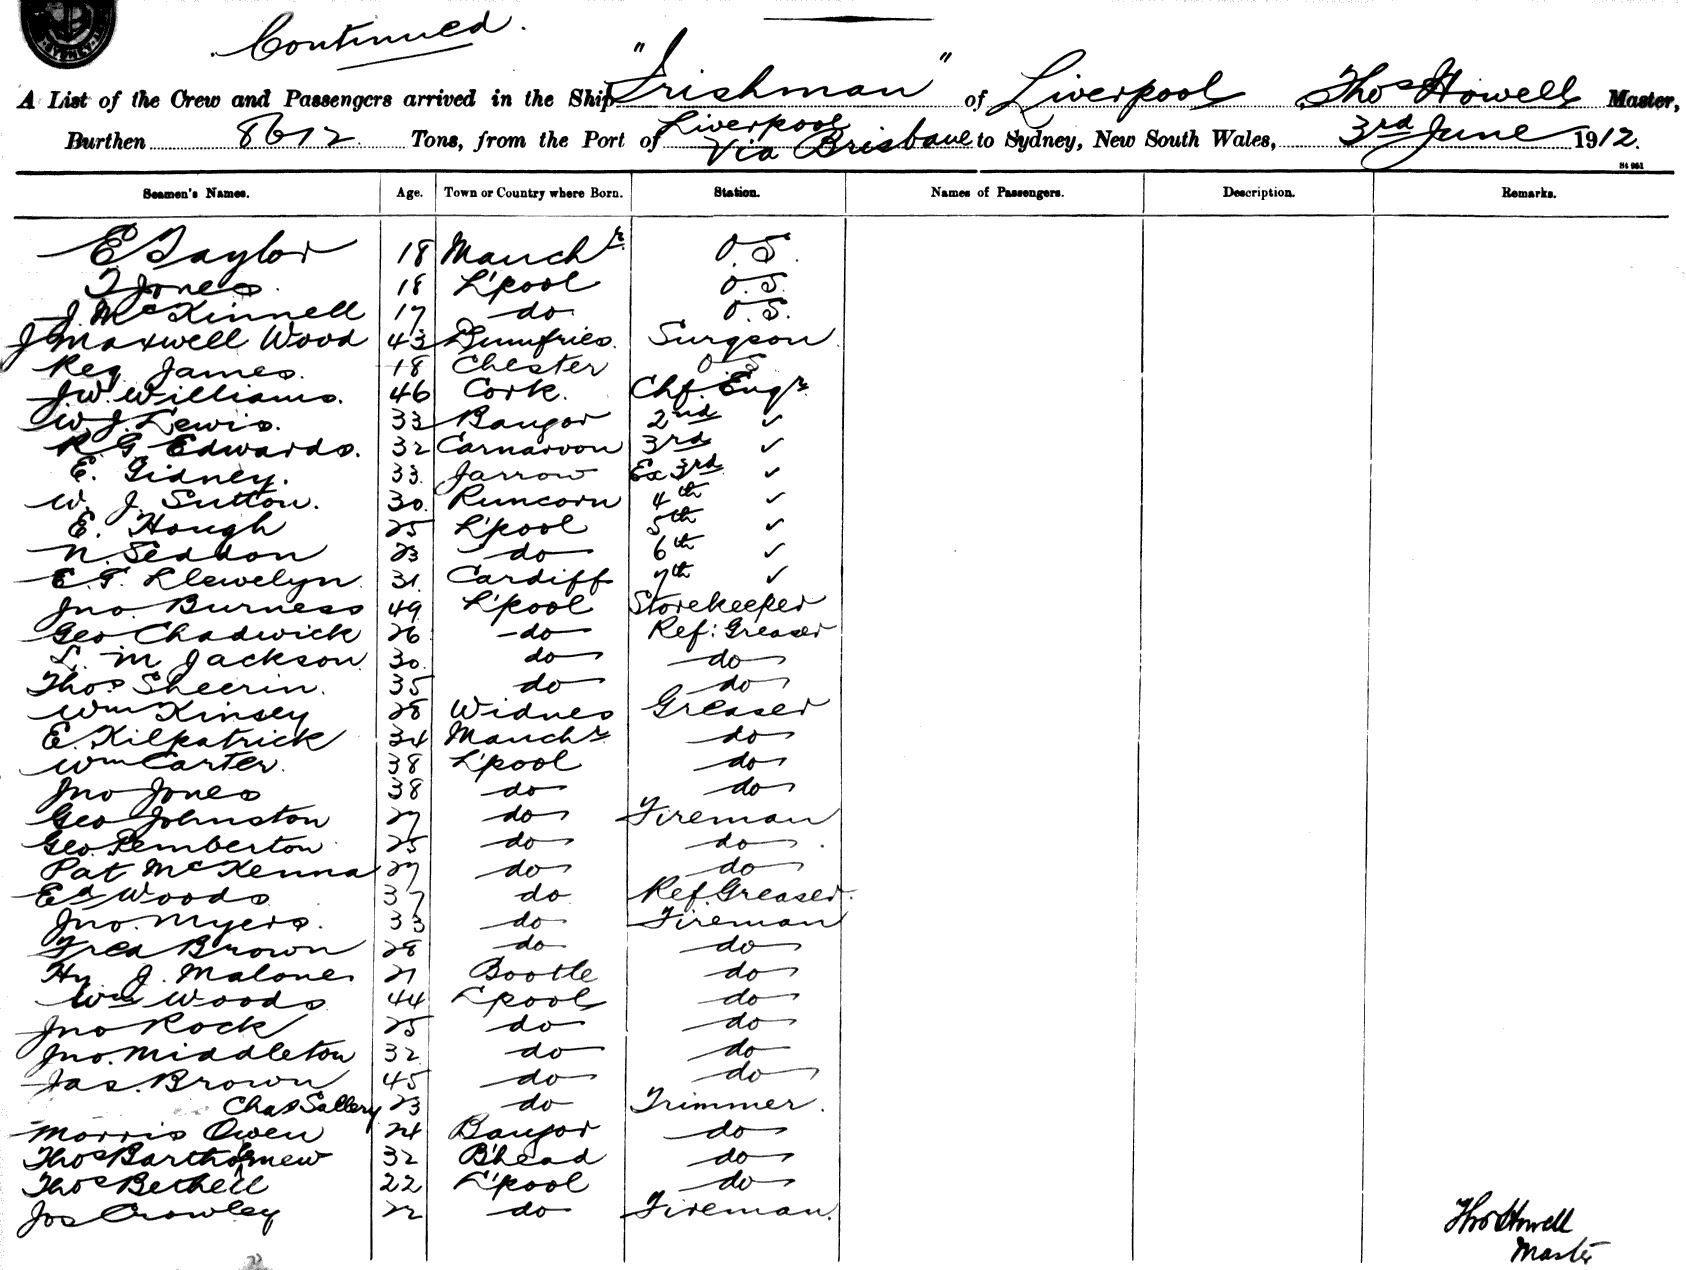 Continued.
A List of the Crew and Passengers arrived in the Ship "Irishman" of Liverpool Thos Howell Master,
Burthen 8612 Tons, from the Port of Liverpool Via Brisbane to Sydney, New South Wales, 3rd June 1912.
Seamen's Names. Age. Town or Country where Born. Station. Names of Passengers. Description. Remarks.
E Taylor 18 Manchr O.S.
T Jones 18 L'pool O.S.
J. McKinnell 17 do O.S.
J Maxwell Wood 43 Dumfries Surgeon
Reg James. 18 Chester O.S.
J.W. Williams. 46 Cork. Chf. Engr.
W.J. Lewis. 33 Bangor 2nd ✓
R G Edwards. 32 Carnarvon 3rd ✓
E. Gidney. 33. Jarrow Ex 3rd ✓
W. J. Sutton. 30. Runcorn 4th ✓
E. Hough 25 L'pool 5th ✓
N. Seddon 23 do 6th ✓
E.T. Llewelyn 31 Cardiff 7th ✓
Jno Burness 49 L'pool Storekeeper
Geo Chadwick 26 do Ref: Greaser
L. M Jackson 30. do do
Thos Sheerin. 35 do do
Wm Kinsey 28 Widnes Greaser
E. Kilpatrick 34 Manchr do
Wm Carter. 38 L'pool do
Jno Jones 38 do do
Geo Johnston 27 do Fireman
Geo. Pemberton 25 do do
Pat McKenna 27 do do
Ed Woods 37 do Ref. Greaser.
Jno. Myers. 33 do Fireman
Fred Brown 28 do do
Hy J. Malone. 21 Bootle do
Wm Woods 44 L'pool do
Jno Rock 25 do do
Jno. Middleton 32 do do
Jas. Brown 45 do do
Chas Sallery 23 do Trimmer.
Morris Owen 24 Bangor do
Thos Bartholomew 32 B'head do
Thos Bethell 22 L'pool do
Jos Crowley 22 do Fireman.
Thos Howell
Master